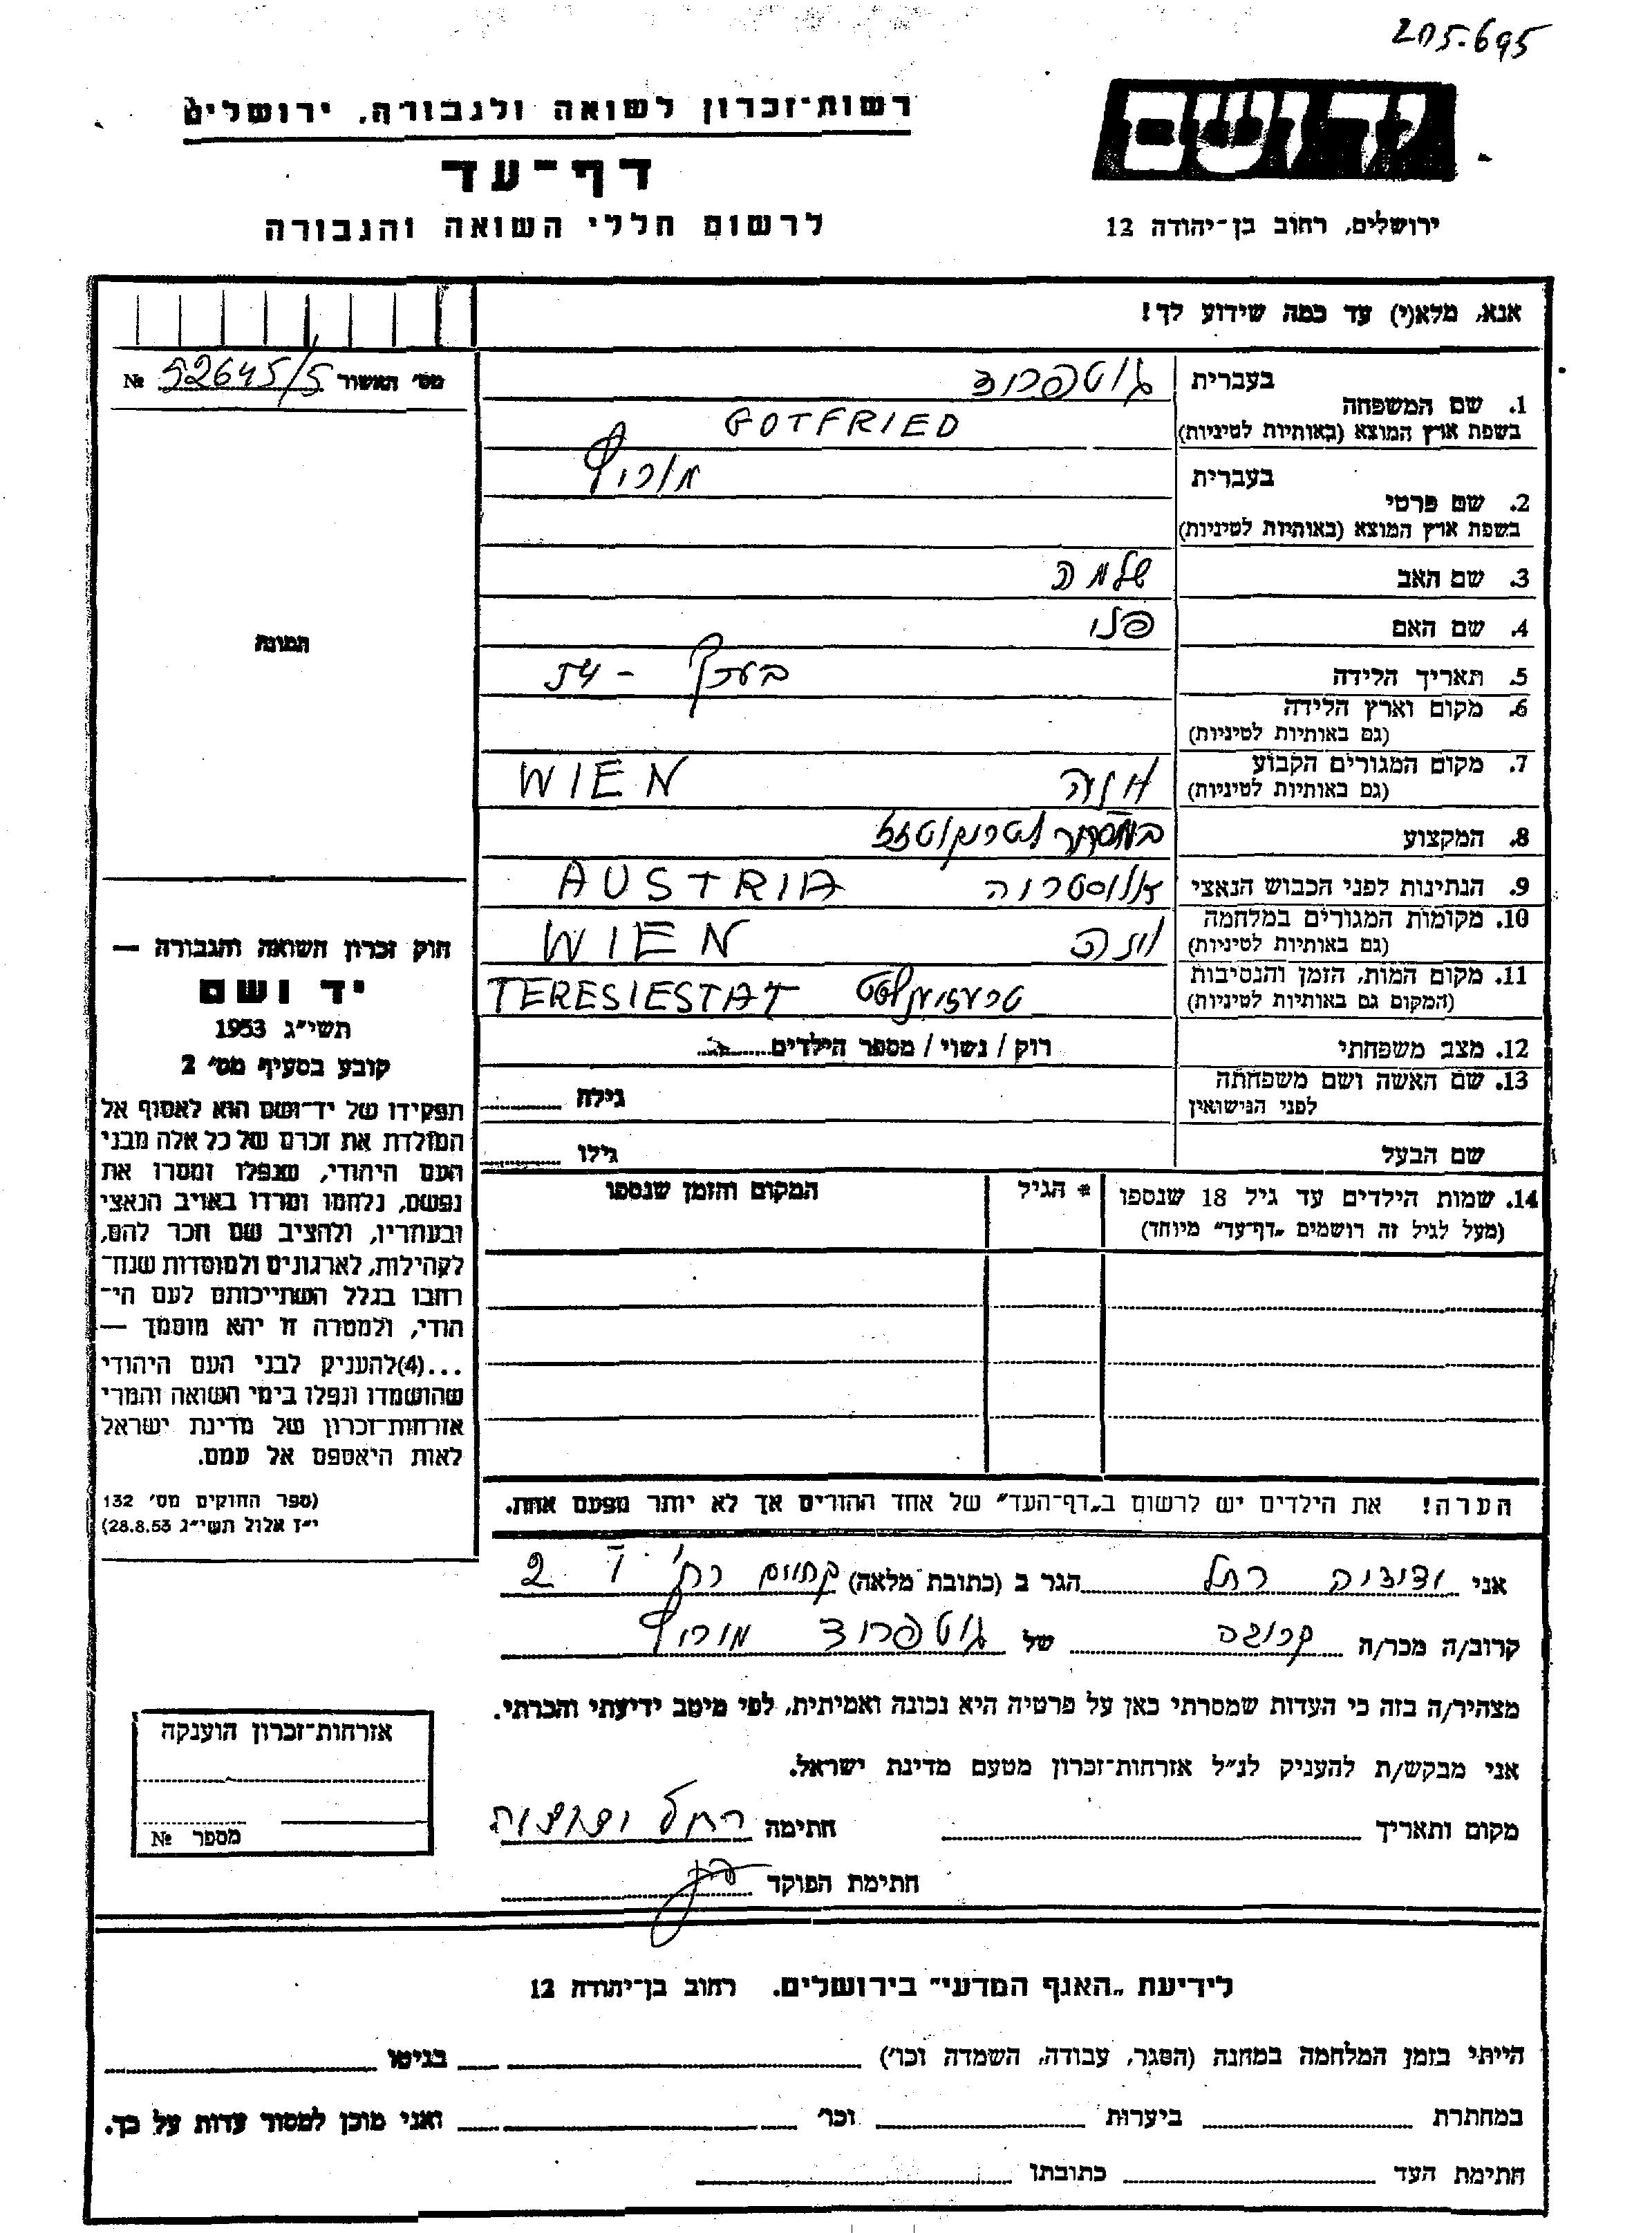 205.695
רשות־זכרון לשואה ולגבורה, ירושלים
יד ושם
דף־עד
לרשום חללי השואה והגבורה
ירושלים, רחוב בן־יהודה 12
אנא, מלא(י) עד כמה שידוע לך!
מס׳ האשור № 52645/5
1. שם המשפחה
בעברית גוטפריד
בשפת ארץ המוצא (באותיות לטיניות) GOTFRIED
2. שם פרטי
בעברית מוריץ
בשפת ארץ המוצא (באותיות לטיניות)
3. שם האב שלמה
4. שם האם פני
5. תאריך הלידה בערך - 54
6. מקום וארץ הלידה
(גם באותיות לטיניות)
7. מקום המגורים הקבוע וינה WIEN
(גם באותיות לטיניות)
8. המקצוע
9. הנתינות לפני הכבוש הנאצי אוסטריה AUSTRIA
10. מקומות המגורים במלחמה וינה WIEN
(גם באותיות לטיניות)
11. מקום המות, הזמן והנסיבות טרעזיענשטט TERESIESTAT
(המקום גם באותיות לטיניות)
12. מצב משפחתי רווק / נשוי / מספר הילדים
13. שם האשה ושם משפחתה
לפני הנישואין
גילה
שם הבעל
גילו
14. שמות הילדים עד גיל 18 שנספו
(מעל לגיל זה רושמים „דף־עד״ מיוחד)
* הגיל
המקום והזמן שנספו
הערה! את הילדים יש לרשום ב„דף־העד״ של אחד ההורים אך לא יותר מפעם אחת.
התמונה
חוק זכרון השואה והגבורה —
יד ושם
תשי״ג 1953
קובע בסעיף מס׳ 2
תפקידו של יד־ושם הוא לאסוף אל
המולדת את זכרם של כל אלה מבני
העם היהודי, שנפלו ומסרו את
נפשם, נלחמו ומרדו באויב הנאצי
ובעוזריו, ולהציב שם וזכר להם,
לקהילות, לארגונים ולמוסדות שנח־
רבו בגלל השתייכותם לעם הי־
הודי, ולמטרה זו יהא מוסמך —
...(4) להעניק לבני העם היהודי
שהושמדו ונפלו בימי השואה והמרי
אזרחות־זכרון של מדינת ישראל
לאות היאספם אל עמם.
(ספר החוקים מס׳ 132
י״ז אלול תשי״ג 28.8.53)
אני רחל הגר ב (כתובת מלאה) רח׳ 2
קרוב/ה מכר/ה קרובה של גוטפריד מוריץ
מצהיר/ה בזה כי העדות שמסרתי כאן על פרטיה היא נכונה ואמיתית, לפי מיטב ידיעתי והכרתי.
אני מבקש/ת להעניק לנ״ל אזרחות־זכרון מטעם מדינת ישראל.
מקום ותאריך חתימה רחל
חתימת הפוקד
אזרחות־זכרון הוענקה
מספר №
לידיעת „האגף המדעי״ בירושלים. רחוב בן־יהודה 12
הייתי בזמן המלחמה במחנה (הסגר, עבודה, השמדה וכו׳) בגיטו
במחתרת ביערות וכו׳ ואני מוכן למסור עדות על כך.
חתימת העד כתובתו